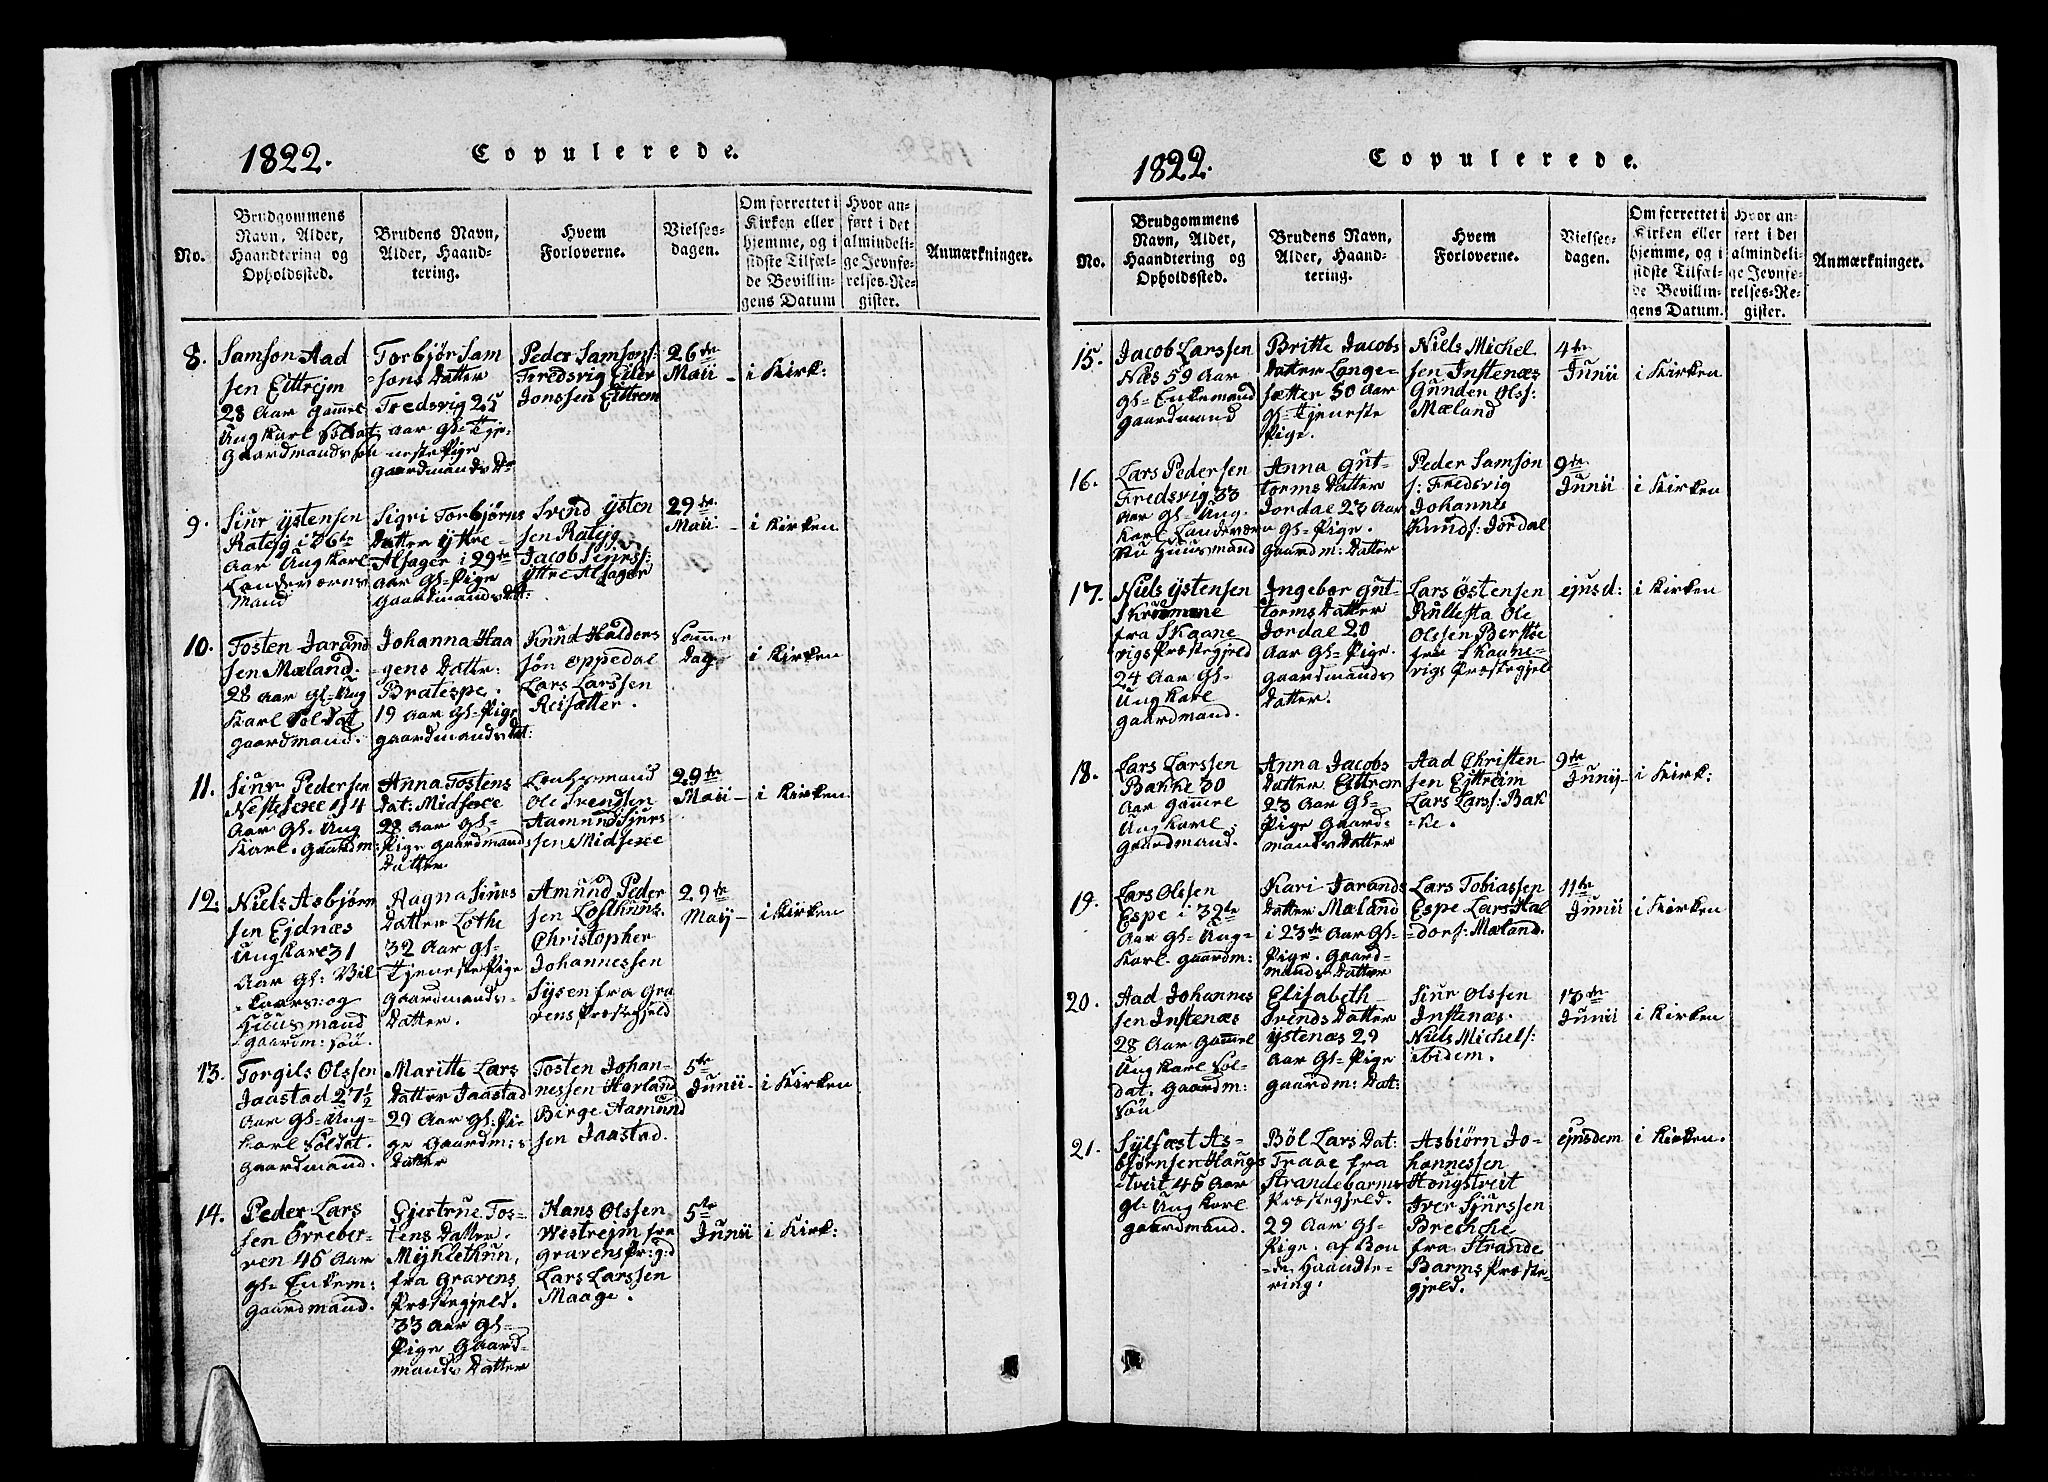 1822. Copulerede.
No.
Brudgommens
Navn, Alder,
Haandtering og
Opholdssted.
Brudens Navn,
Alder, Haand-
tering.
Hvem
Forloverne.
Vielses-
dagen.
Om forrettet i
Kirken eller
hjemme, og i
sidste Tilfæl-
de Bevillin-
gens Datum
Hvor an-
ført i det
almindeli-
ge Jevnfø-
relses-Re-
gister.
Anmærkninger.
8.
Samson Aad
sen Eittrejm
28 Aar Gammel
Ungkarl Soldat
Gaardmandsøn
Torbjør Sam
=sons Datter
Fredsvig 25
Aar Gl= Tje-
neste Pige
Gaardmands D
Peder Samsons:
Fredsvig Eiler
Jonssen Eittrem
26de
Maii -
i Kirk:
9.
Siur Ystensen
i 26te
Aar Ungkarl
Landeværns
Mand
Sigri Torbjørns
Datter Ytre-
Alsager i 29de
Aar Gl= Pige
Gaardmands Dat:
Svend Ysten
sen
Jacob
Yttre Alsager
29de
Maii -
i Kirken
10.
Tosten Jarand
sen Mæland.
28 Aar Gl= Ung
Karl Soldat
Gaardmand.
Johanna Haa
=gens Datter:
Bratespe.
19 Aar Gl= Pige
Gaardmands Dat:
Knud Halders
søn Oppedal
Lars Larssen
Reisætter.
Samme
Dag
i Kirken
11.
Siur Pedersen
Aar Gl. Ung
Karl. Gaardm:
Anna Tostens
Dat: Midsexe
28 Aar Gl-
Pige Gaardmands
Datter
Lensmand
Ole Svendsen
Aamund Siurs
sen Midsexe
29de
Maii -
i Kirken
12.
Niels Asbjørn
sen Ejdnæs
Ungkarl 31
Aar Gl: Vil
og
Huusmand
Gaardm: Søn.
Ragna Siurs
Datter Lothe
32 Aar Gl-
Tjeneste Pige
Gaardmands-
Datter.
Amund Peder
sen Lofthuus
Christopher
Johannessen
Sysen fra Gra
vens Præstegjeld
29de
Maij -
i Kirken
13.
Torgils Olssen
Jaastad 27½
Aar Gl= Ung-
karl Soldat.
Gaardmand.
Maritte Lars
Datter Jaastad
29 Aar Gl: Pi-
ge Gaardm:s
Datter
Tosten Johan-
nessen Horland
Birge Aamund
sen Jaastad.
5te
Junii -
i Kirken
14.
Peder Lars
sen Orreber-
ven 45 Aar
Gl= Enkem:
Gaardmand.
Gjertrue Tos-
tens Datter.
Myklethun,
fra Gravens
Præstegjeld.
33 Aar Gl-
Pige Gaard-
mands Datter
Hans Olssen
Westrejm fra
Gravens Pr:g:d
Lars Larssen
Maage.
5te
Junii
i Kirk:
1822. Copulerede.
No.
Brudgommens
Navn, Alder,
Haandtering og
Opholdssted.
Brudens Navn,
Alder, Haand-
tering.
Hvem
Forloverne.
Vielses-
dagen.
Om forrettet i
Kirken eller
hjemme, og i
sidste Tilfæl-
de Bevillin-
gens Datum.
Hvor an-
ført i det
almindeli-
ge Jevnfø-
relses-Re-
gister.
Anmærkninger.
15.
Jacob Larssen
Næs 59 Aar
Gl= Enkemand
Gaardmand
Britte Jacobs
Datter Lange-
sætter 50 Aar
Gl= Tjeneste
Pige.
Niels Michel
sen Instenæs
Gunder Olss:
Mæland
4de
Junii
i Kirken
16.
Lars Pedersen
Fredsvig 33
Aar Gl= Ung-
Karl Landeværn
Nu Huusmand
Anna Gut-
torms Datter
Jordal 23 Aar
Gl= Pige.
Gaardm: Datter
Peder Samson
s: Fredsvig
Johannes
Knuds: Jordal
9de
Junii
i Kirken
17.
Niels Ystensen
fra Skaane
vigs Præstegjeld
24 Aar Gl-
Ungkarl
Gaardmand.
Ingebor Gut-
torms Datter
Jordal 20
Aar Gl= Pige.
Gaardmands
Datter.
Lars Østensen
Rullesta Ole
Olssen
fra Skaane-
vigs Præstegjeld
ejusd:
i Kirken
18.
Lars Larssen
Bakke 30
Aar Gammel
Ungkarl
Gaardmand.
Anna Jacobs
Datter Eittrem
23 Aar Gl-
Pige Gaard-
mands Datter
Aad Christen
sen Ejttreim
Lars Larss: Bak
=ke.
9de
Junij-
i Kirk:
19.
Lars Olssen
Espe i 32te
Aar Gl= Ung-
Karl Gaardm:
Kari Jarands
Datter Mæland
i 23de Aar Gl-
Pige. Gaard-
mands Datter
Lars Tobiassen
Espe Lars Hal
=dors: Mæland.
11te
Junii
i Kirken
20.
Aad Johannes
sen Instenæs
28 Aar Gammel
Ungkarl Sol-
dat. Gaardm:
Søn
Elisabeth
Svends Datter
Ystenæs 29
Aar Gl= Pige
Gaardm: Dat:
Siur Olssen
Instenæs.
Niels Michels:
ibidem.
13de
Junii
i Kirken
21.
Sylfæst As-
bjørnsen Haugs
=tveit 45 Aar
Gl= Ungkarl
Gaardmand.
Böl Lars Dat:
Traae fra
Strandebarms
Præstegjeld.
29 Aar Gl-
Pige. af Bon
=de Haandte-
ring.
Asbiørn Jo-
hannessen
Hougstveit
Iver Sjurssen
fra Strande
Barms Præste-
gjeld.
ejusdem
i Kirken.